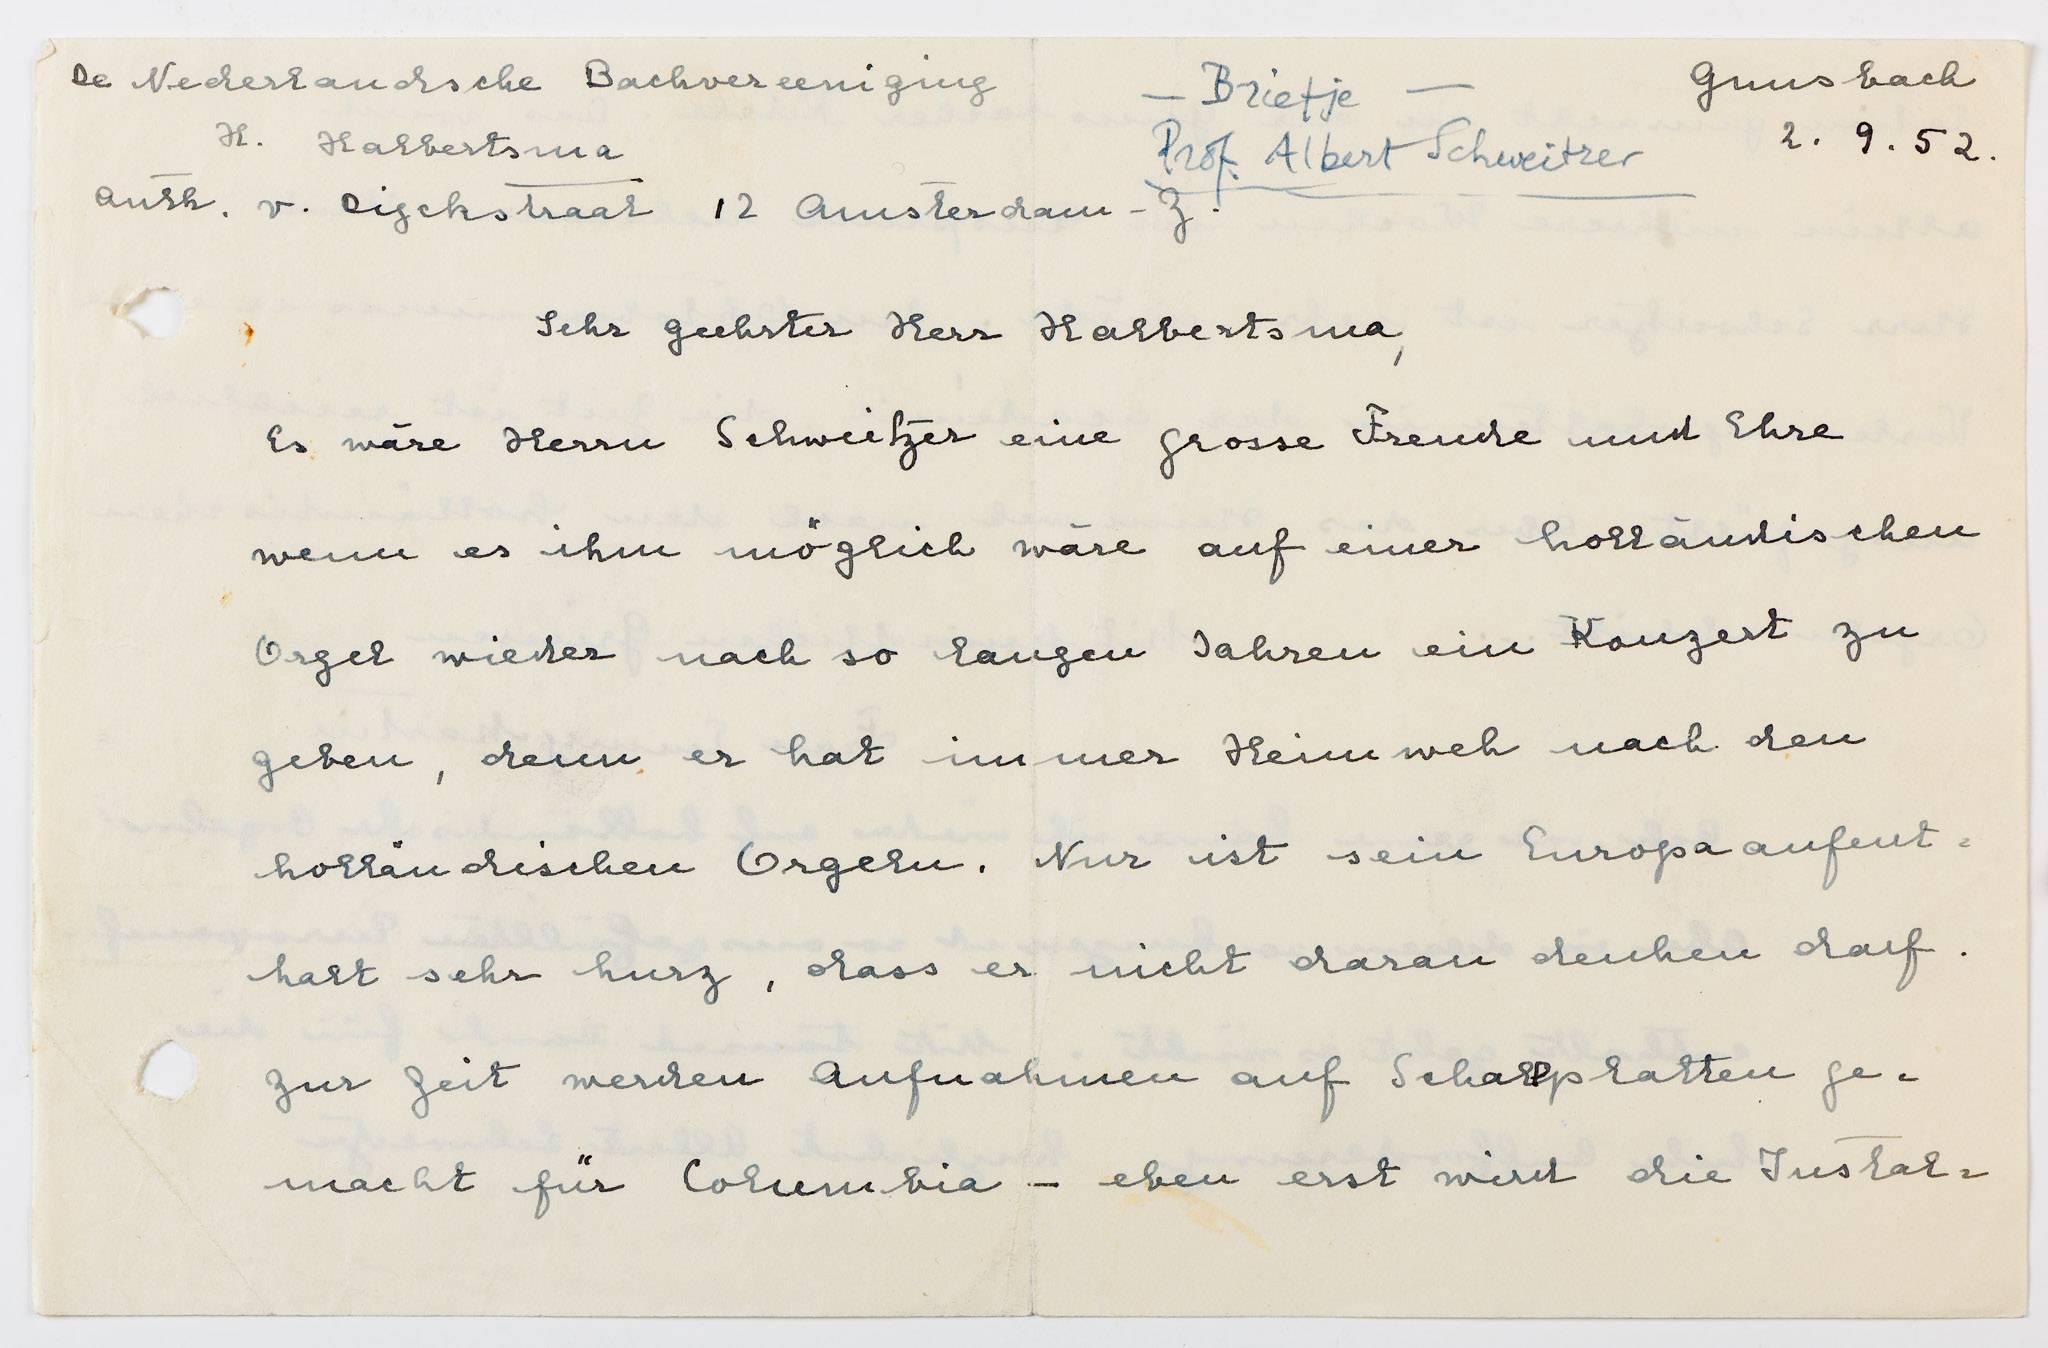 De Nederlandsche Bachvereeniging
H. Halbertsma
Anth. v. Dijckstraat 12 Amsterdam-Z.
— Briefje —
Prof. Albert Schweitzer
Gunsbach
2. 9. 52.
Sehr geehrter Herr Halbertsma,
Es wäre Herrn Schweitzer eine grosse Freude und Ehre
wenn es ihm möglich wäre auf einer holländischen
Orgel wieder nach so langen Jahren ein Konzert zu
geben, denn er hat immer Heimweh nach den
holländischen Orgeln. Nur ist sein Europaaufent=
halt sehr kurz, dass er nicht daran denken darf.
Zur Zeit werden Aufnahmen auf Schallplatten ge=
macht für Columbia – eben erst wird die Instal=